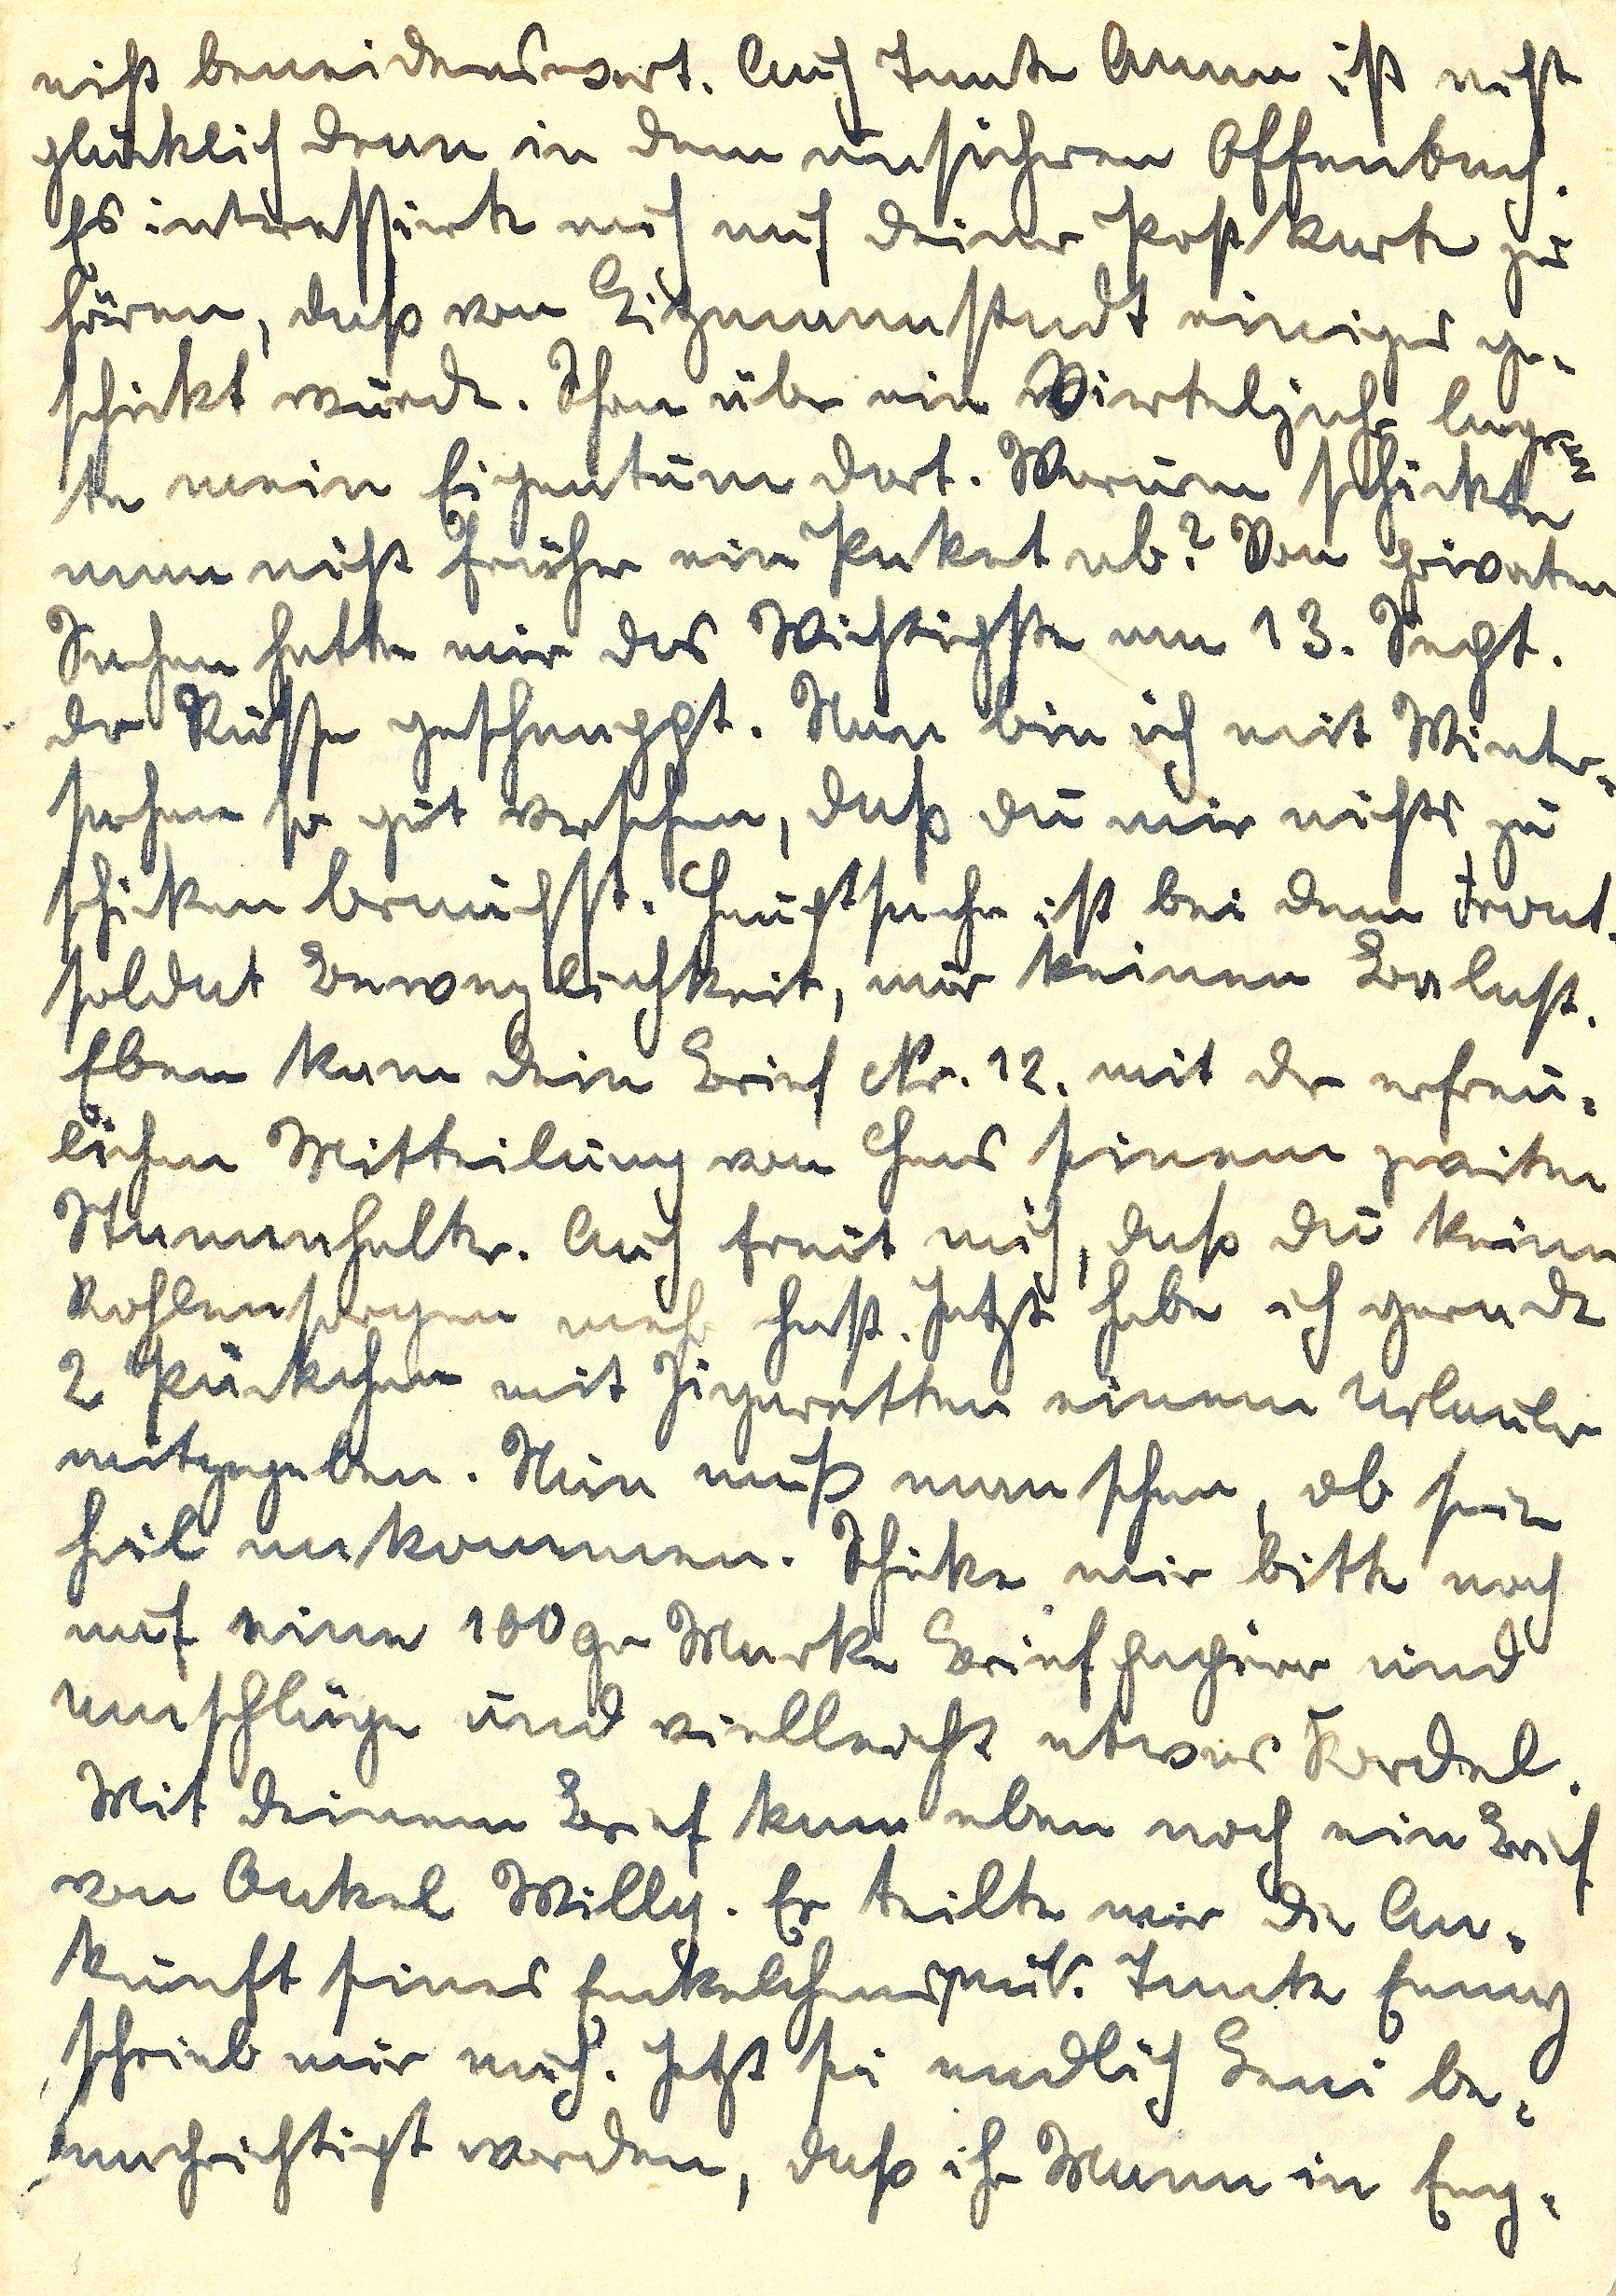 nicht beneidenswert. Auch Tante Anna ist nicht
glücklich denn in dem unsicheren Offenbach.
Es interessierte mich auf deiner Postkarte zu
hören, daß von Litzmannstadt einiges ge-
schickt wurde. Schon über ein Vierteljahr lager-
te mein Eigentum dort. Warum schickte
man nicht früher ein Paket ab? Von privaten
Sachen hatte mir das Wichtigste am 13. Sept.
der Russe geschnappt. Nun bin ich mit Winter-
sachen so gut versehen, daß du mir nichts zu
schicken brauchst. Hauptsache ist bei dem Front-
soldat Beweglichkeit, nur keinen Balast.
Eben kam dein Brief Nr. 12. mit der erfreu-
lichen Mitteilung von Hans seinem zweiten
Stammhalter. Auch freut mich, daß du keine
Kohlensorgen mehr hast. Jetzt habe ich gerade
2 Päckchen mit Zigaretten einem Urlauber
mitgegeben. Nun muß man sehen, ob sie
heil ankommen. Schicke mir bitte noch
auf eine 100 gr Marke Briefpapier und
Umschläge und vielleicht etwas Kordel.
Mit deinem Brief kam eben noch ein Brief
von Onkel Willy. Er teilte mir die An-
kunft seines Enkelchens mit. Tante Enny
schrieb mir auch. Jetzt sei endlich Leni be-
nachrichtigt worden, daß ihr Mann in Eng-